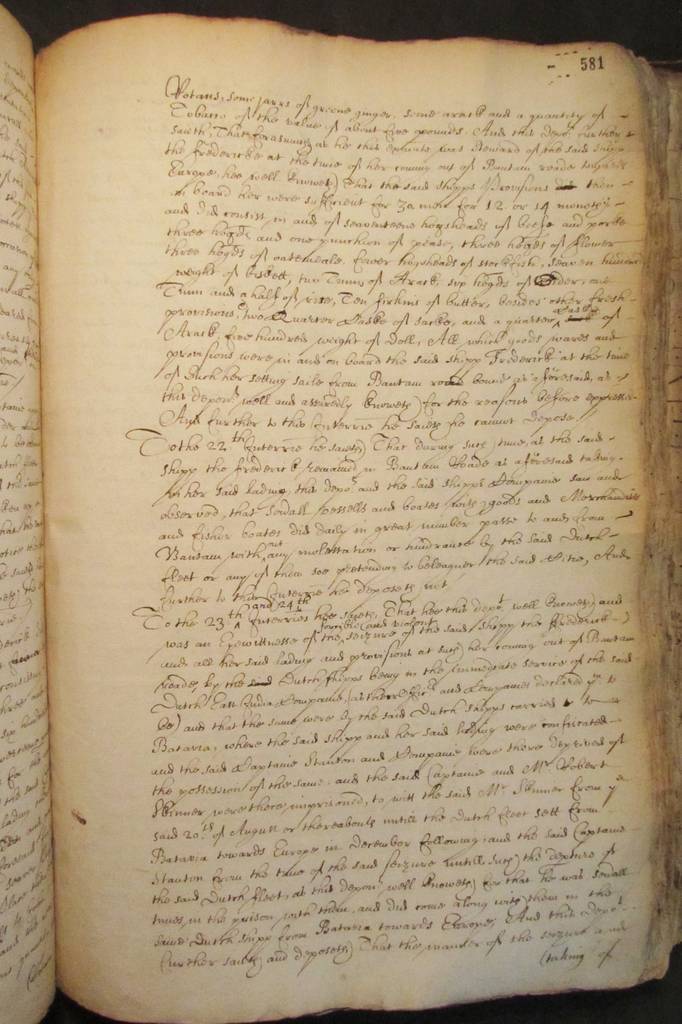 581
Potans, some jarrs of greene ginger, some arack and a quantity of
Tobacco of the value of about five pounds. And this depo.t further
saieth, That forasmuch as hee this was Steward of the said shipp
the Fredericke at the time of her coming out of Bantam roade towards
Europe, hee well knoweth That the said shipps provisions then
on board her were sufficient for 30 men for 12 or 14 moneths
and did consist in and of seaventeene hogsheads of beefe and porke
three hogds and one punchion of pease, three hogds of flower
three hogds of oatemeale, fower hogsheads of stockfish, seaven hundred
weight of Biskett, two Tunns of Arack, six hogds of Sider, one
Tunn and a halfe of rice, Ten firkins of butter, besides other fresh
provisions, two Quarter Caske of sacke, and a quarter Caske of
Arack, five hundred weight of Doll, All which goods wares and
provisions were in and on board the said shipp Frederick at the time
of such her setting saile from Bantam road bound as aforesaid, as
this depon.t well and assuredly knoweth for the reasons before expressed
And further to this Interrie he saith he cannot depose
To the 22th Interrie he saieth That during such time, as the said
shipp the Frederick remained in Bantam Roade as aforesaid taking
in her said lading, this depo.t and the said shipps Companie saw and
observed, that severall vessells and boates with goods and Merchandize
and fisher boates did daily in great number passe to and from
Bantam, without any molestation or hindrance by the said Dutch
fleet or any of them soe pretending to beleaguer the said Citie, And
further to this Interrie he deposeth not
To the 23th and 24th Interries he saieth, That hee this depo.t well knoweth and
was an Eyewittnesse of the forcible and violent seizure of the said shipp the Frederick
and all her said lading and provisions at such her coming out of Bantam
roade, by the Dutch shipps being in the immediate service of the said
Dutch East India Companie (as their and Companies declared y.m to
be) and that the same were by the said Dutch shipps carried to
Batavia, where the said shipp and her said lading were confiscated
and the said Captaine Stanton and Companie were there deprived of
the possession of the same, and the said Captaine and Mr. Robert
Skinner were there imprisoned, to witt the said Mr. Skinner from ye
said 20th of August or thereabouts untill the Dutch fleet sett from
Batavia towards Europe in December following, and the said Captaine
Stanton from the time of the said seizure untill such the departure of
the said Dutch fleet, as this depon.t well knoweth for that he was severall
times in the prison with them, and did come along with them in the
same Dutch shipp from Batavia towards Europe. And this depo.t
further saieth and deposeth That the manner of the seizure and
(taking of